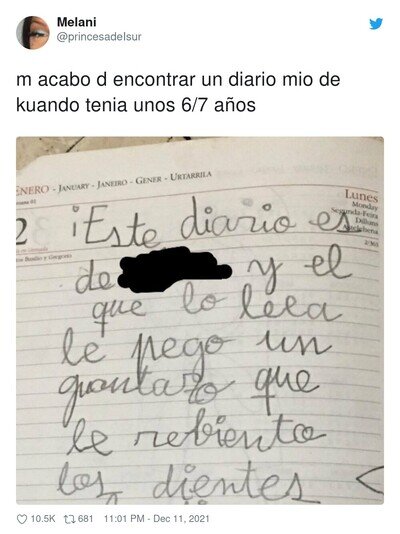 Melani
@princesadelsur
m acabo d encontrar un diario mio de
kuando tenia unos 6/7 años
ENERO - JANUARY - JANEIRO - GENER - URTARRILA
Lunes
Monday
Segunda-Feira
Dilluns
Astelehena
2/363
2
¡Este diario es
de y el
que lo leea
le pego un
guantazo que
le rebiento
los dientes
10.5K 681 11:01 PM - Dec 11, 2021